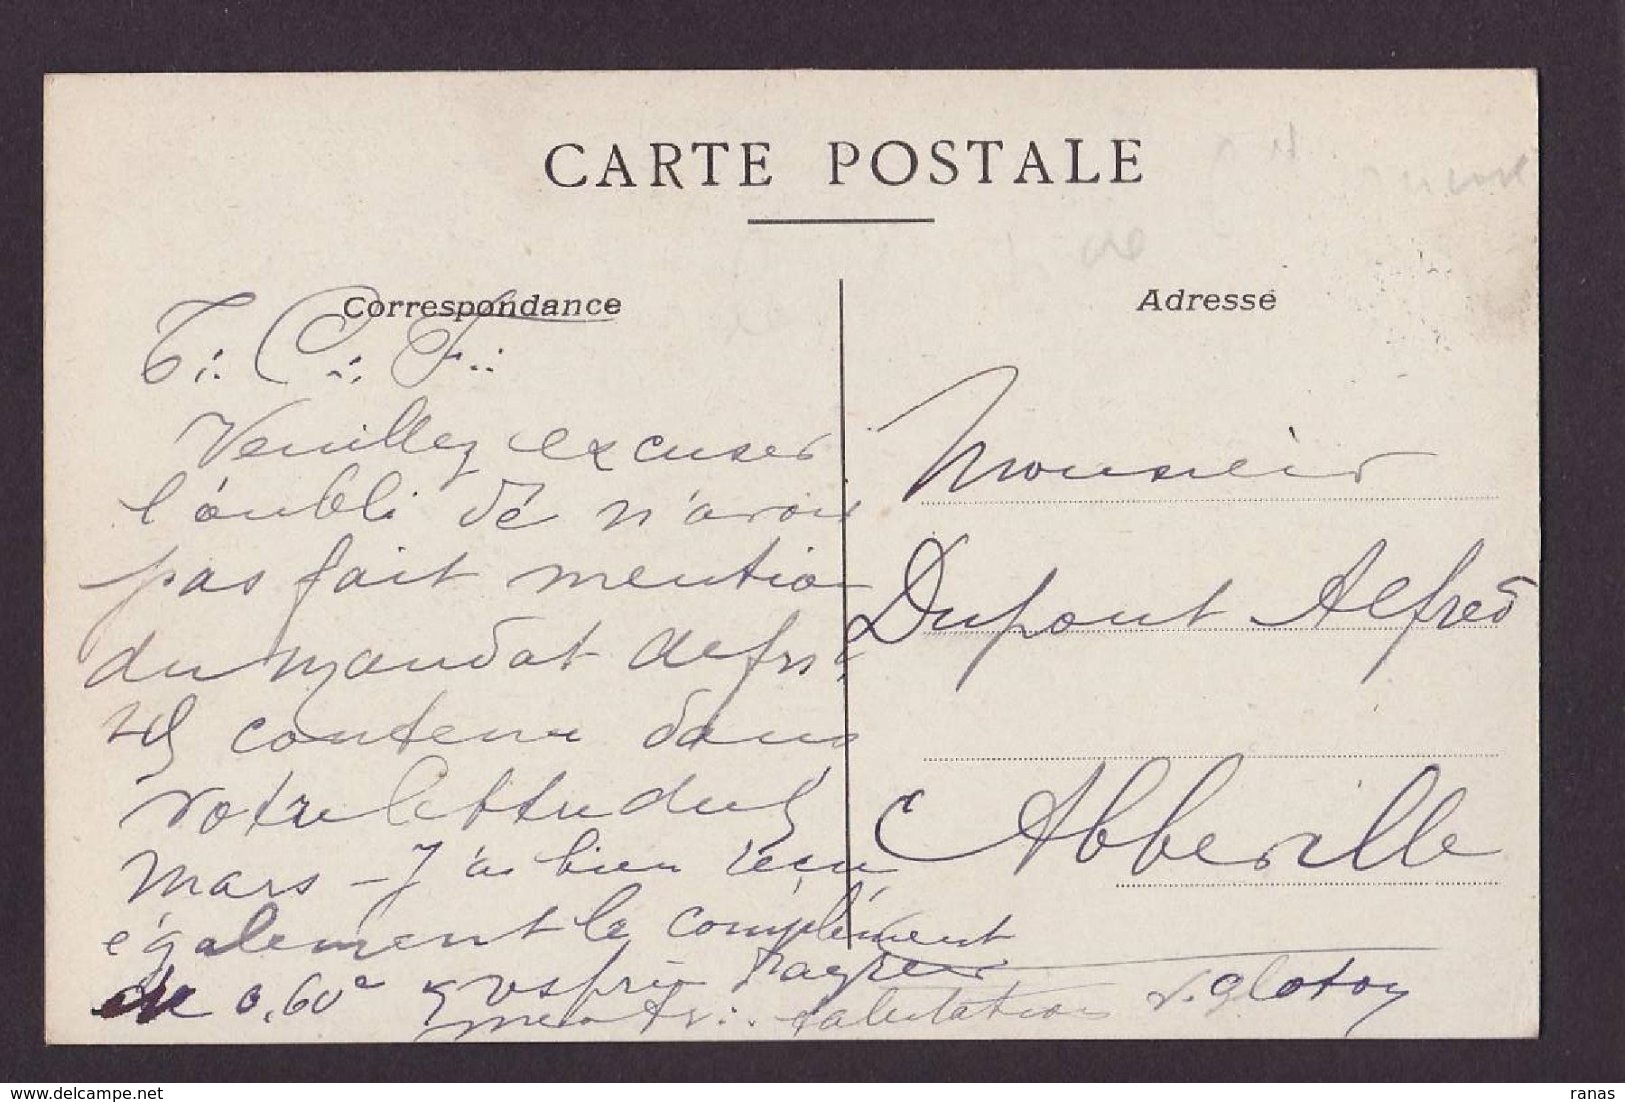 CARTE POSTALE
Correspondance
T∴ C∴ F∴
Veuillez excuser
l'oubli de n'avoir
pas fait mention
du mandat de frs
contenu dans
votre lettre du 5
mars - J'ai bien reçu
également le complément
de 0,60 & vs prie d'agréer
mes salutations
Adresse
Monsieur
Dupont Alfred
Abbeville
delcampe.net
ranas